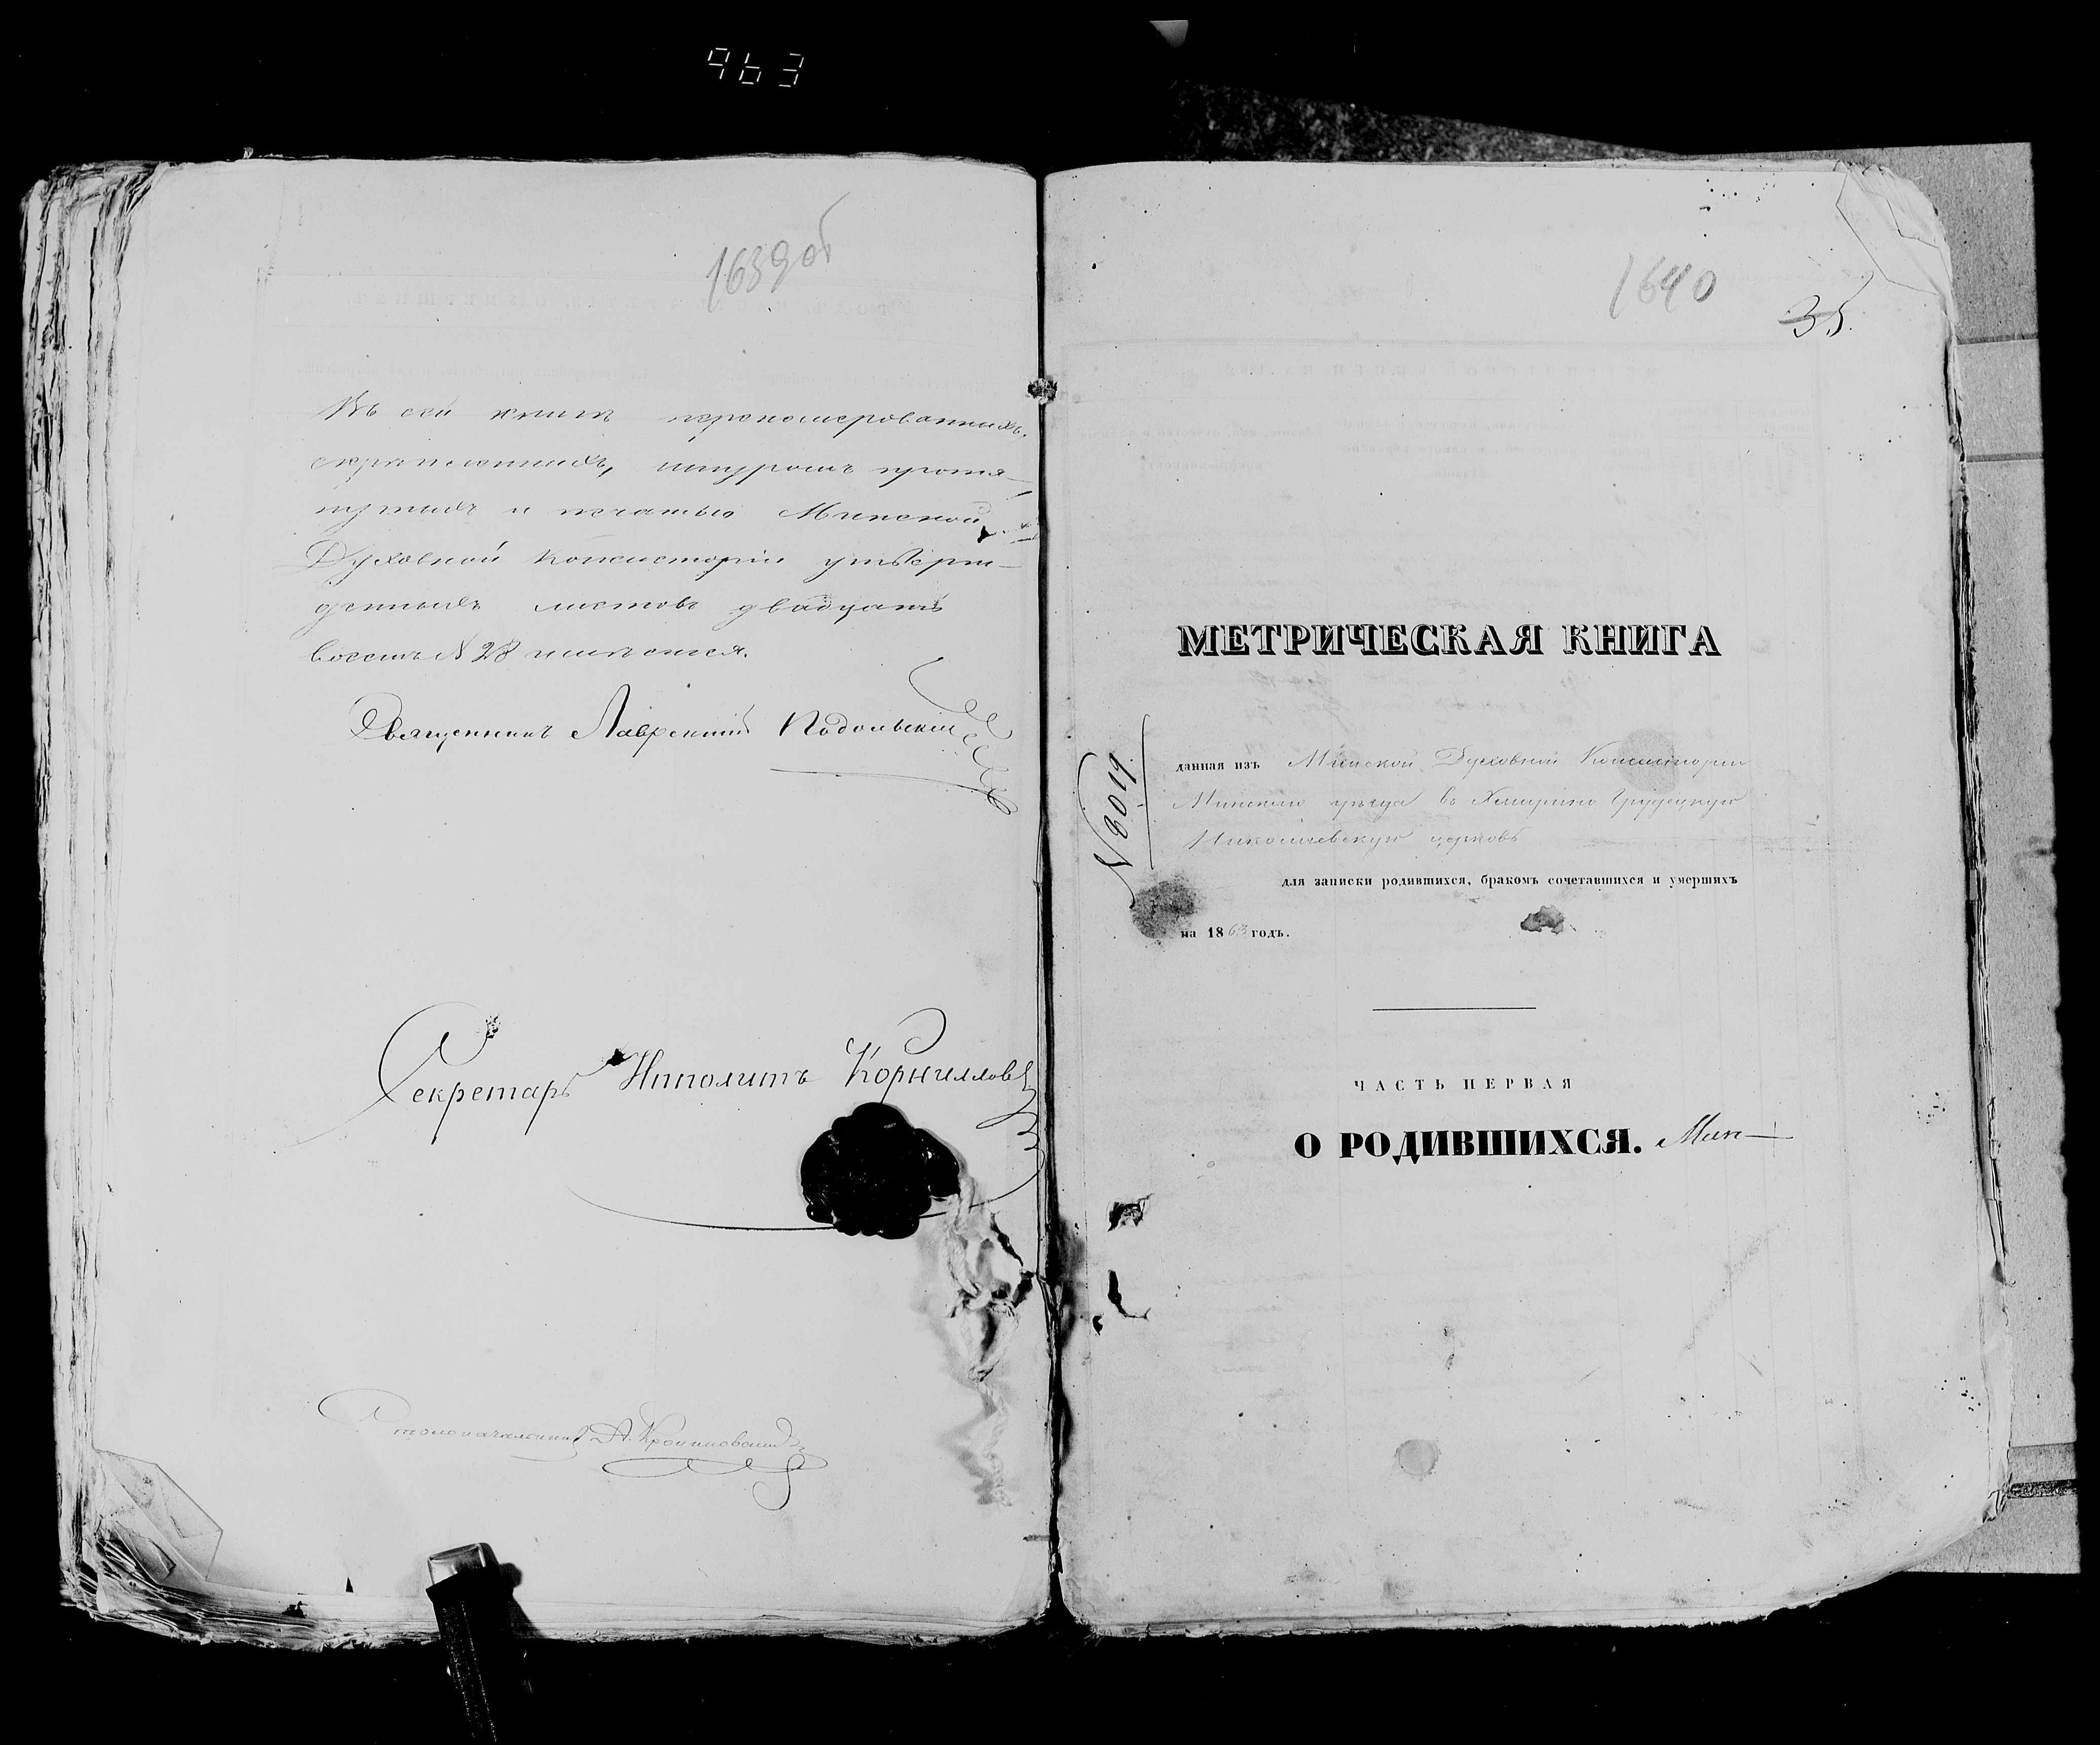 963
1639об
Въ сей книгѣ перенумерованныхъ,
скрѣпленныхъ, шнуромъ протя-
нутыхъ и печатью Минской
Духовной Консисторіи утверж-
денныхъ листовъ двадцать
восемь № 28 имѣется.
Священникъ Лаврентій Подольскій
Секретарь Ипполитъ Корнилловъ
Столоначальникъ А.
1640
35.
МЕТРИЧЕСКАЯ КНИГА
№ 6019.
данная изъ Минской Духовной Консисторіи
Минскаго уѣзда въ Грудецкую
Николаевскую церковь
для записки родившихся, бракомъ сочетавшихся и умершихъ
на 1863 годъ.
ЧАСТЬ ПЕРВАЯ
О РОДИВШИХСЯ. Мин—